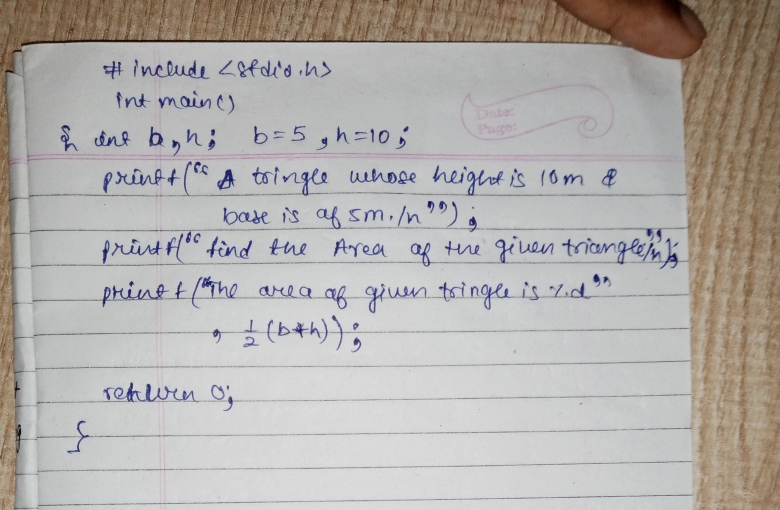 # include <stdio.h>
int main()
Date:
Page:
{ int b,h; b=5 ,h=10;
printf(“ A tringle whose height is 10m &
base is of 5m./n”);
printf(“ find the Area of the given triangle/n”);
printf(“The area of given tringle is %.d”
, 1/2 (b*h));
return 0;
}